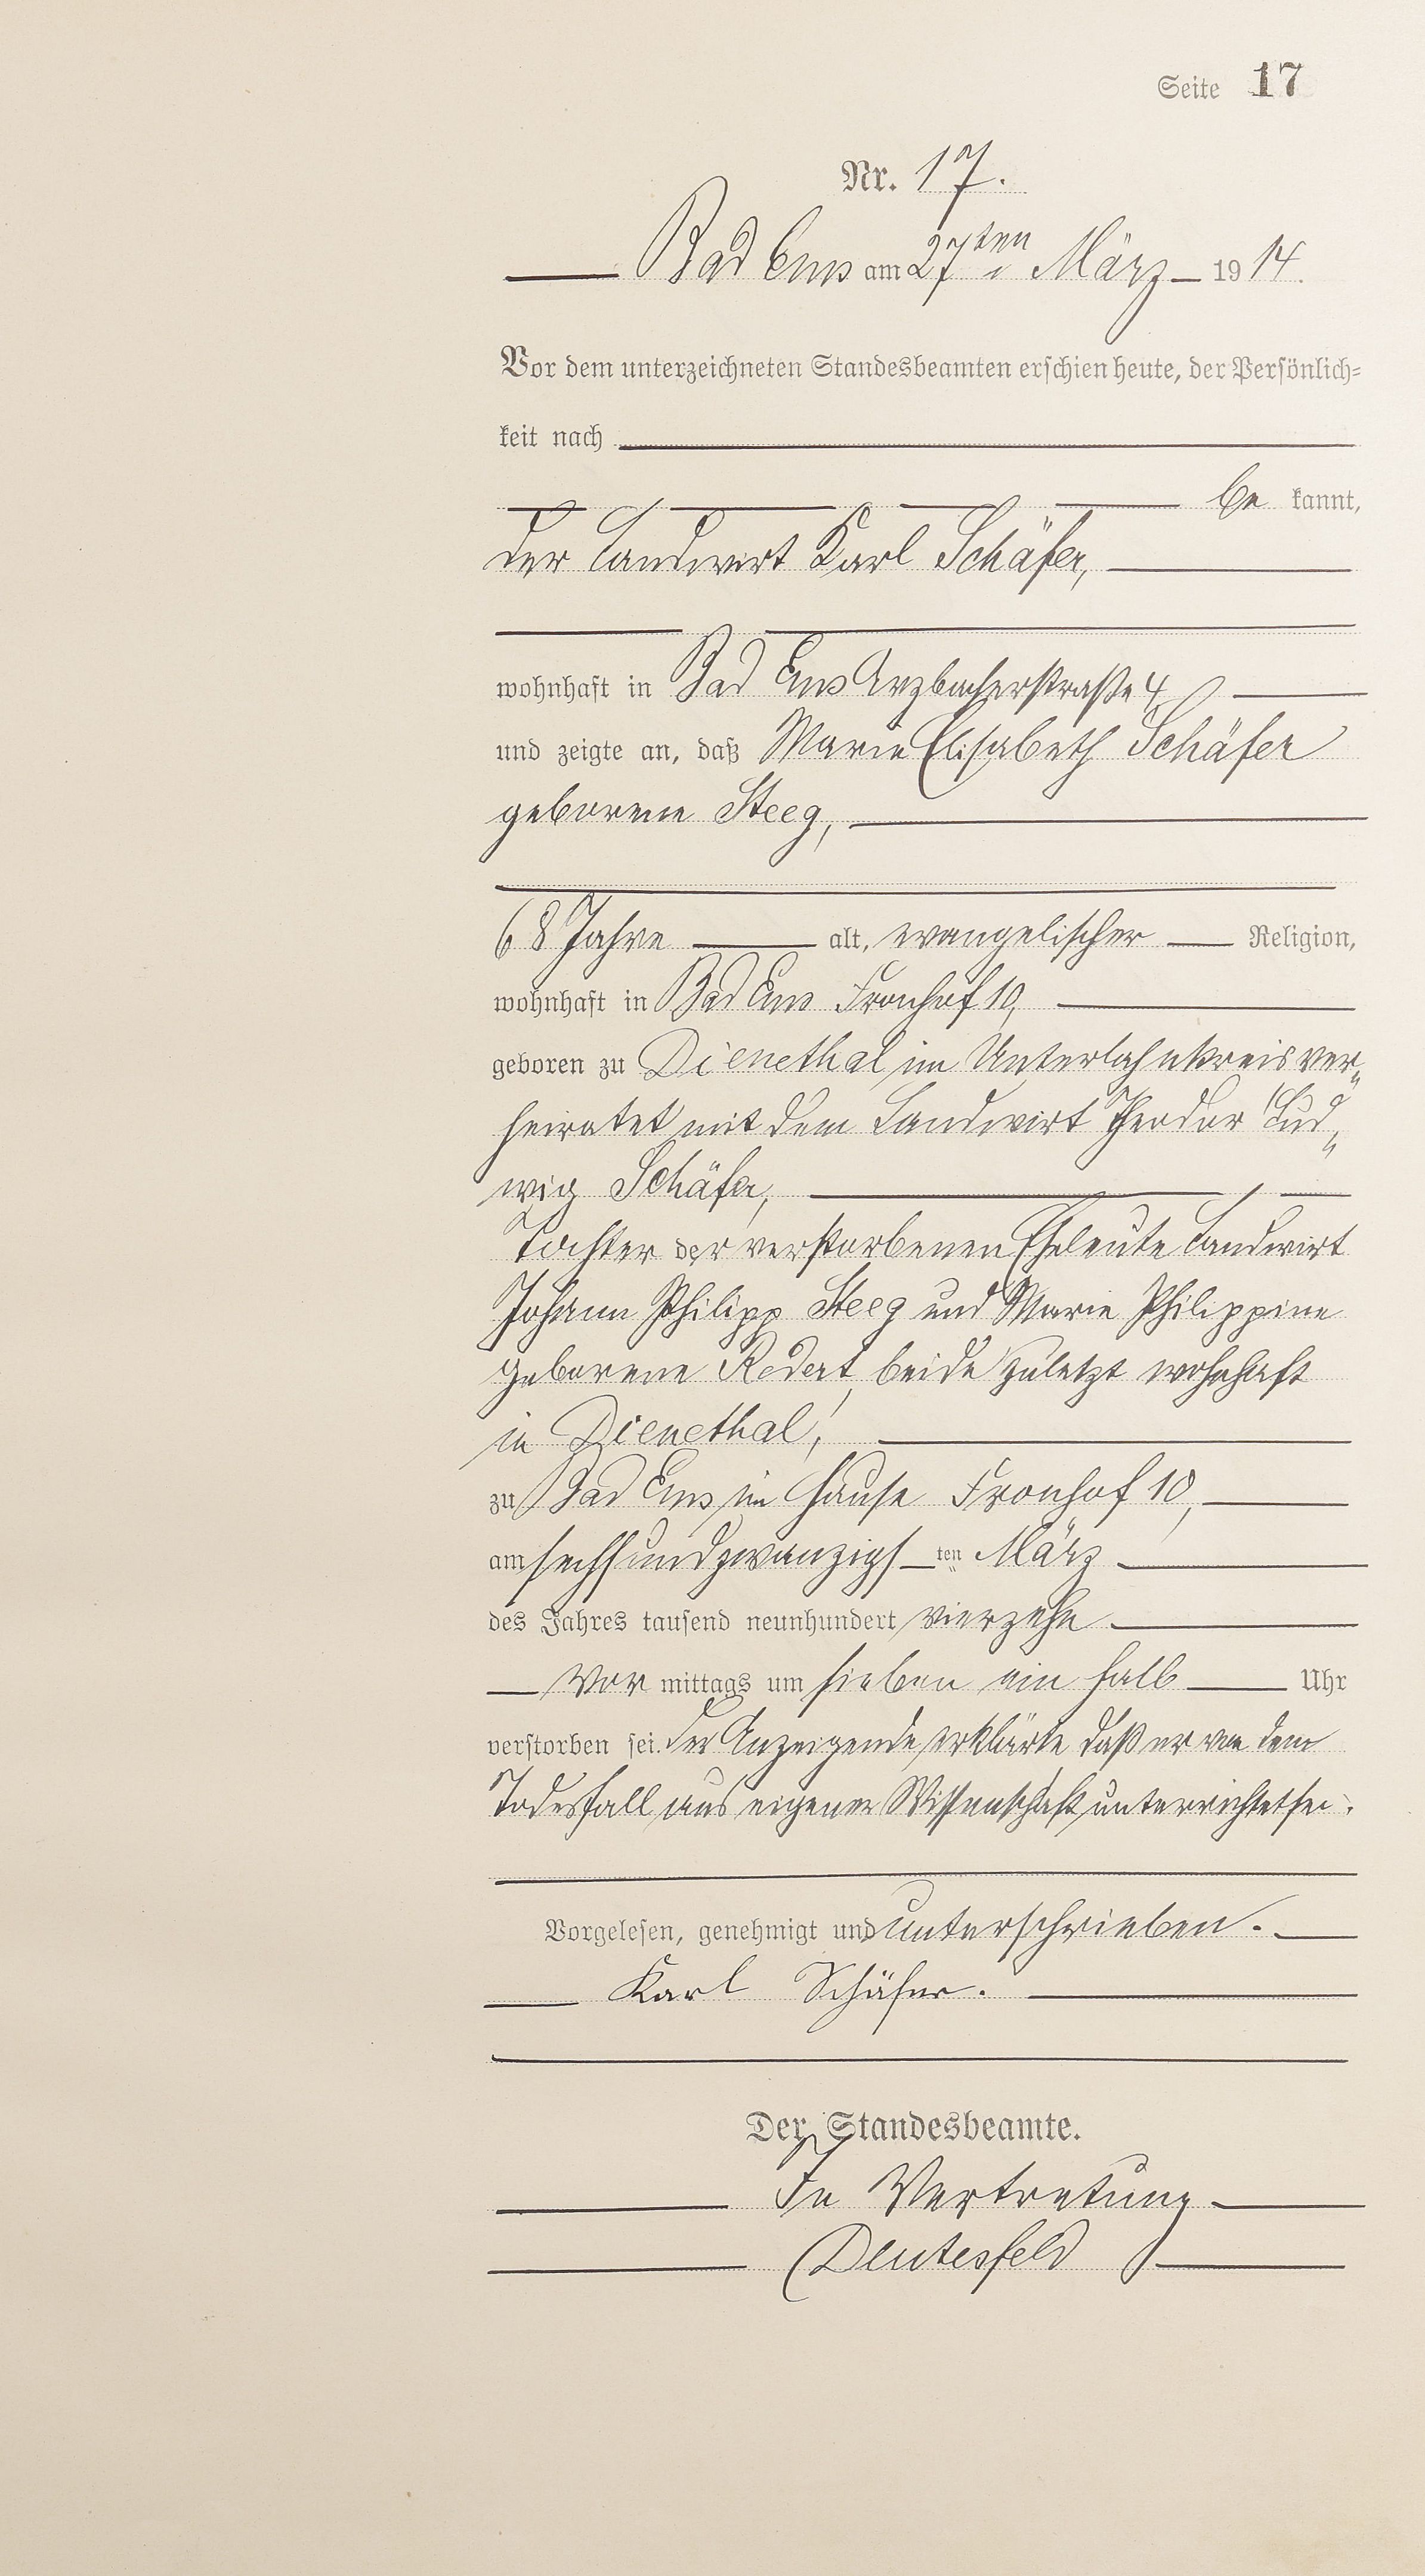 Seite 17
Nr. 17.
Bad Ems am 27ten März 1914.
Vor dem unterzeichneten Standesbeamten erschien heute, der Persönlich-
keit nach
be kannt,
der Landwirt Karl Schäfer,
wohnhaft in Bad Ems Arzbacherstraße 4,
und zeigte an, daß Marie Elisabeth Schäfer
geborene Steeg,
68 Jahre alt, evangelischer Religion,
wohnhaft in Bad Ems Fronhof 10,
geboren zu Dienethal im Unterlahnkreis ver-
heiratet mit dem Landwirt Theodor Lud-
wig Schäfer,
Tochter der verstorbenen Eheleute Landwirt
Johann Philipp Steeg und Marie Philippine
geborene Rodert, beide zuletzt wohnhaft
in Dienethal,
zu Bad Ems im Hause Fronhof 10,
am sechsundzwanzigsten März
des Jahres tausend neunhundert vierzehn
Vor mittags um sieben ein halb Uhr
verstorben sei. Der Anzeigende erklärte daß er von dem
Todesfall aus eigener Wissenschaft unterrichtet sei.
Vorgelesen, genehmigt und unterschrieben.
Karl Schäfer.
Der Standesbeamte.
In Vertretung
Deutesfeld